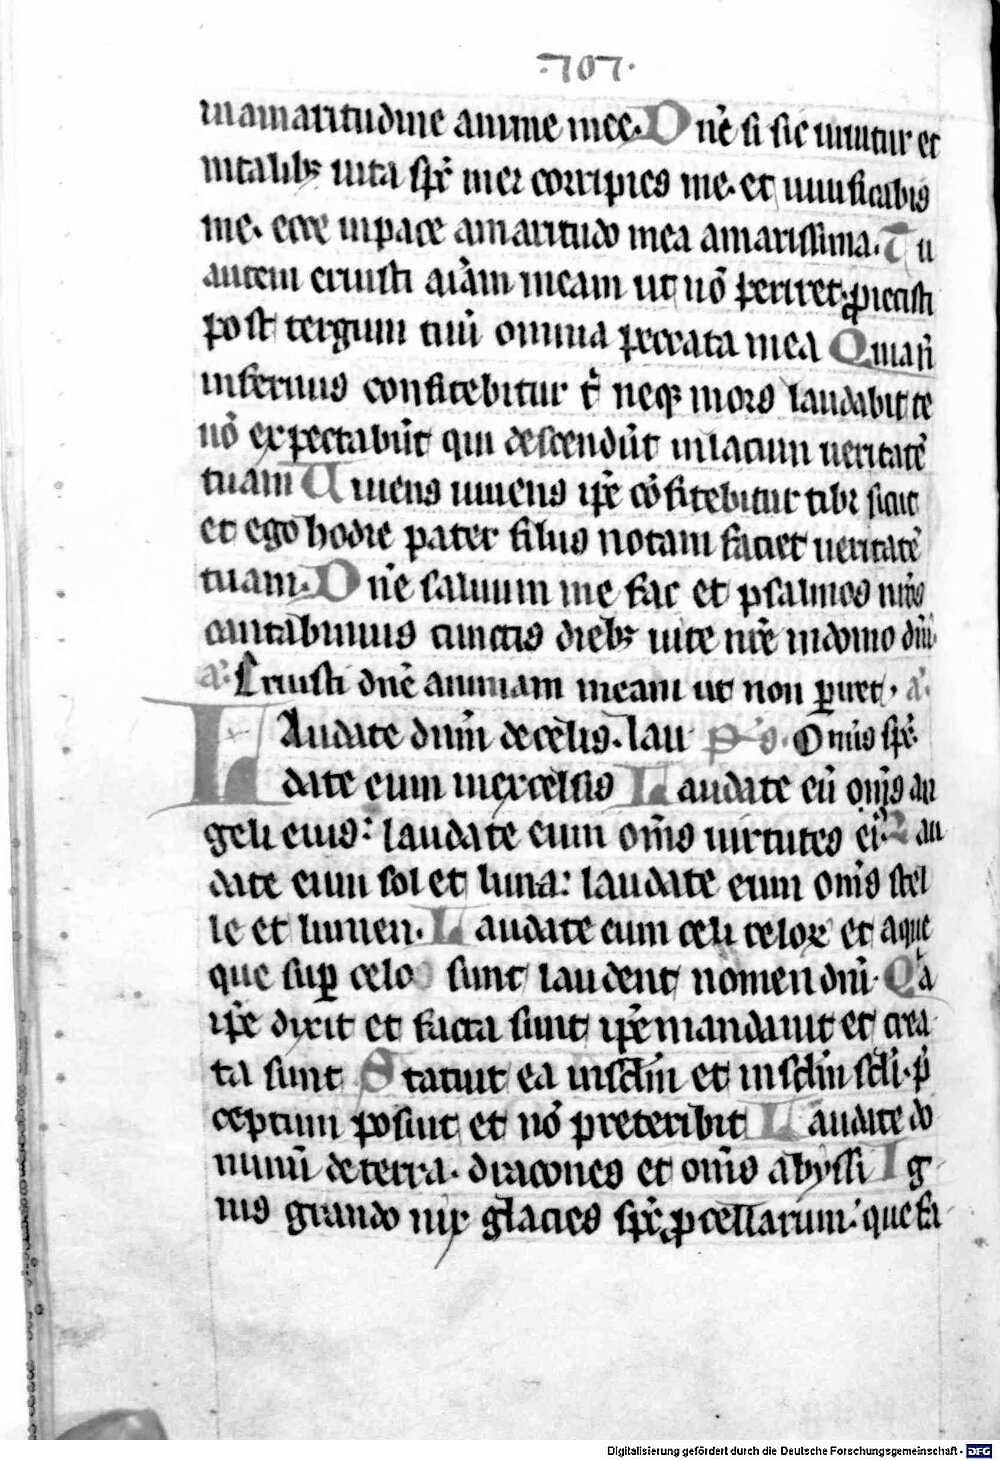 ·707·
inamaritudine anime mee. Dnẽ si sic uiuitur et
intalibꝫ uita sp̃s mei corripies me. et uiuificabis
me. ecce inpace amaritudo mea amarissima. Tu
autem eruisti aĩam meam ut nõ periret. ꝓiecisti
post tergum tuũ omnia peccata mea Quiañ
infernus confitebitur t̃ neqꝫ mors laudabit te
nõ expectabũt qui descendũt inlacum ueritatẽ
tuam Uiuens uiuens ip̃e cõfitebitur tibi sicut
et ego hodie pater filius notam faciet ueritatẽ
tuam. Dnẽ saluum me fac et psalmos nr̃os
cantabimus cunctis diebꝫ uite nr̃e indomo dñi.
a. Eruisti dnẽ animam meam ut non ꝑiret, a.
Laudate dnm̃ decelis. lau ps. Omĩs sp̃s.
date eum inexcelsis Laudate eũ om̃s an
geli eius: laudate eum om̃s uirtutes ei. Lau
date eum sol et luna: laudate eum om̃s stel
le et lumen. Laudate eum celi celoꝝ et aque
que suꝑ celos sunt laudent nomen dñi. Qa
ip̃e dixit et facta sunt ip̃e mandauit et crea
ta sunt Statuit ea insc̃lm̃ et insc̃lm̃ sc̃li. p̃
ceptum posuit et nõ preteribit Laudate do
minũ deterra. dracones et om̃s abyssi Ig
nis grando nix glacies sp̃s ꝓcellarum: que fa
Digitalisierung gefördert durch die Deutsche Forschungsgemeinschaft - DFG